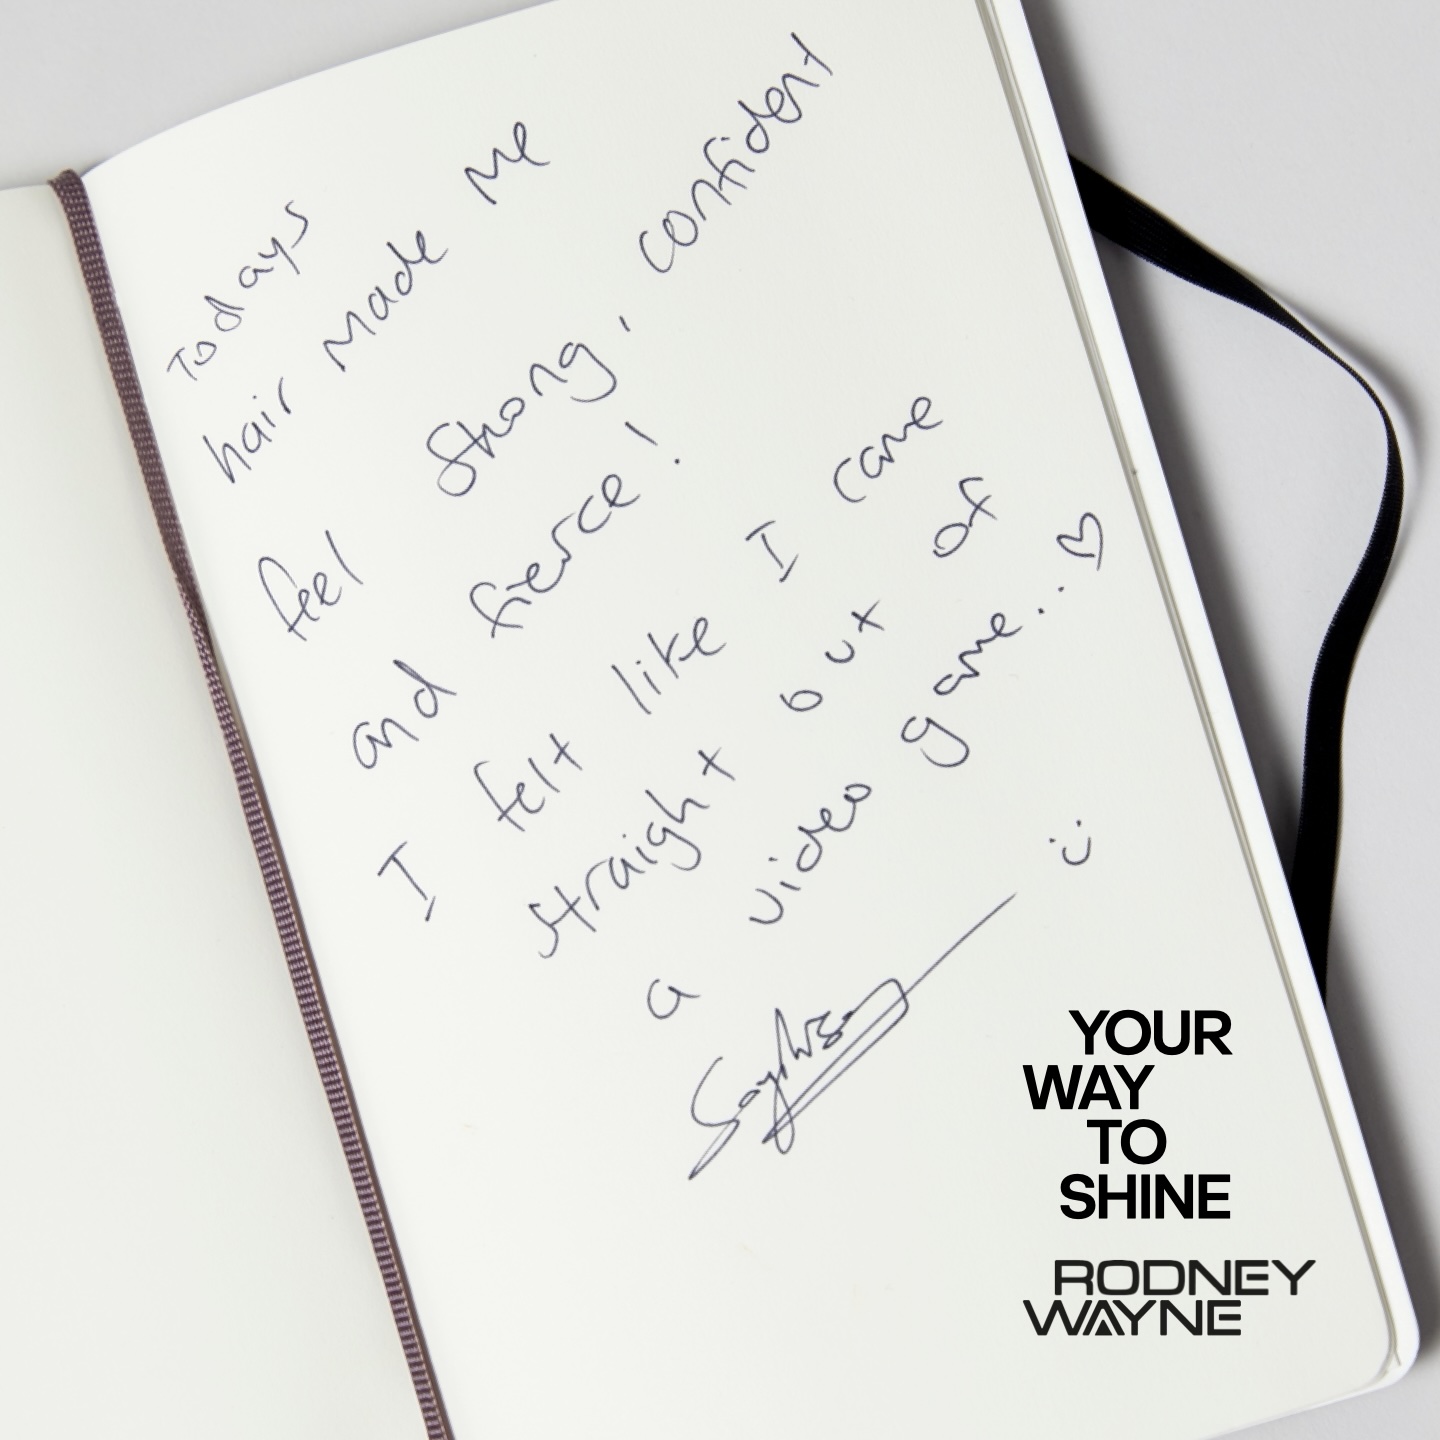 Todays
hair made me
feel strong, confident
and fierce!
I felt like I came
straight out of
a video game.. ♡
:)
YOUR
WAY
TO
SHINE
RODNEY
WAYNE